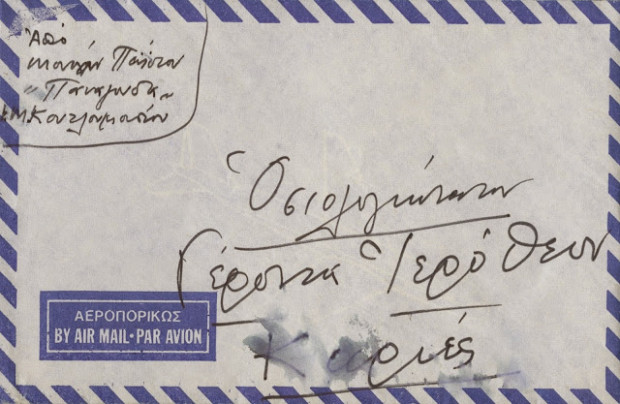 Ἀπό
μοναχόν Παΐσιον
"Παναγούδα"
Ι.Μ. Κουτλουμουσίου
Ὁσιολογιώτατον
Γέροντα Ἱερόθεον
Καρυές
ΑΕΡΟΠΟΡΙΚΩΣ
BY AIR MAIL·PAR AVION